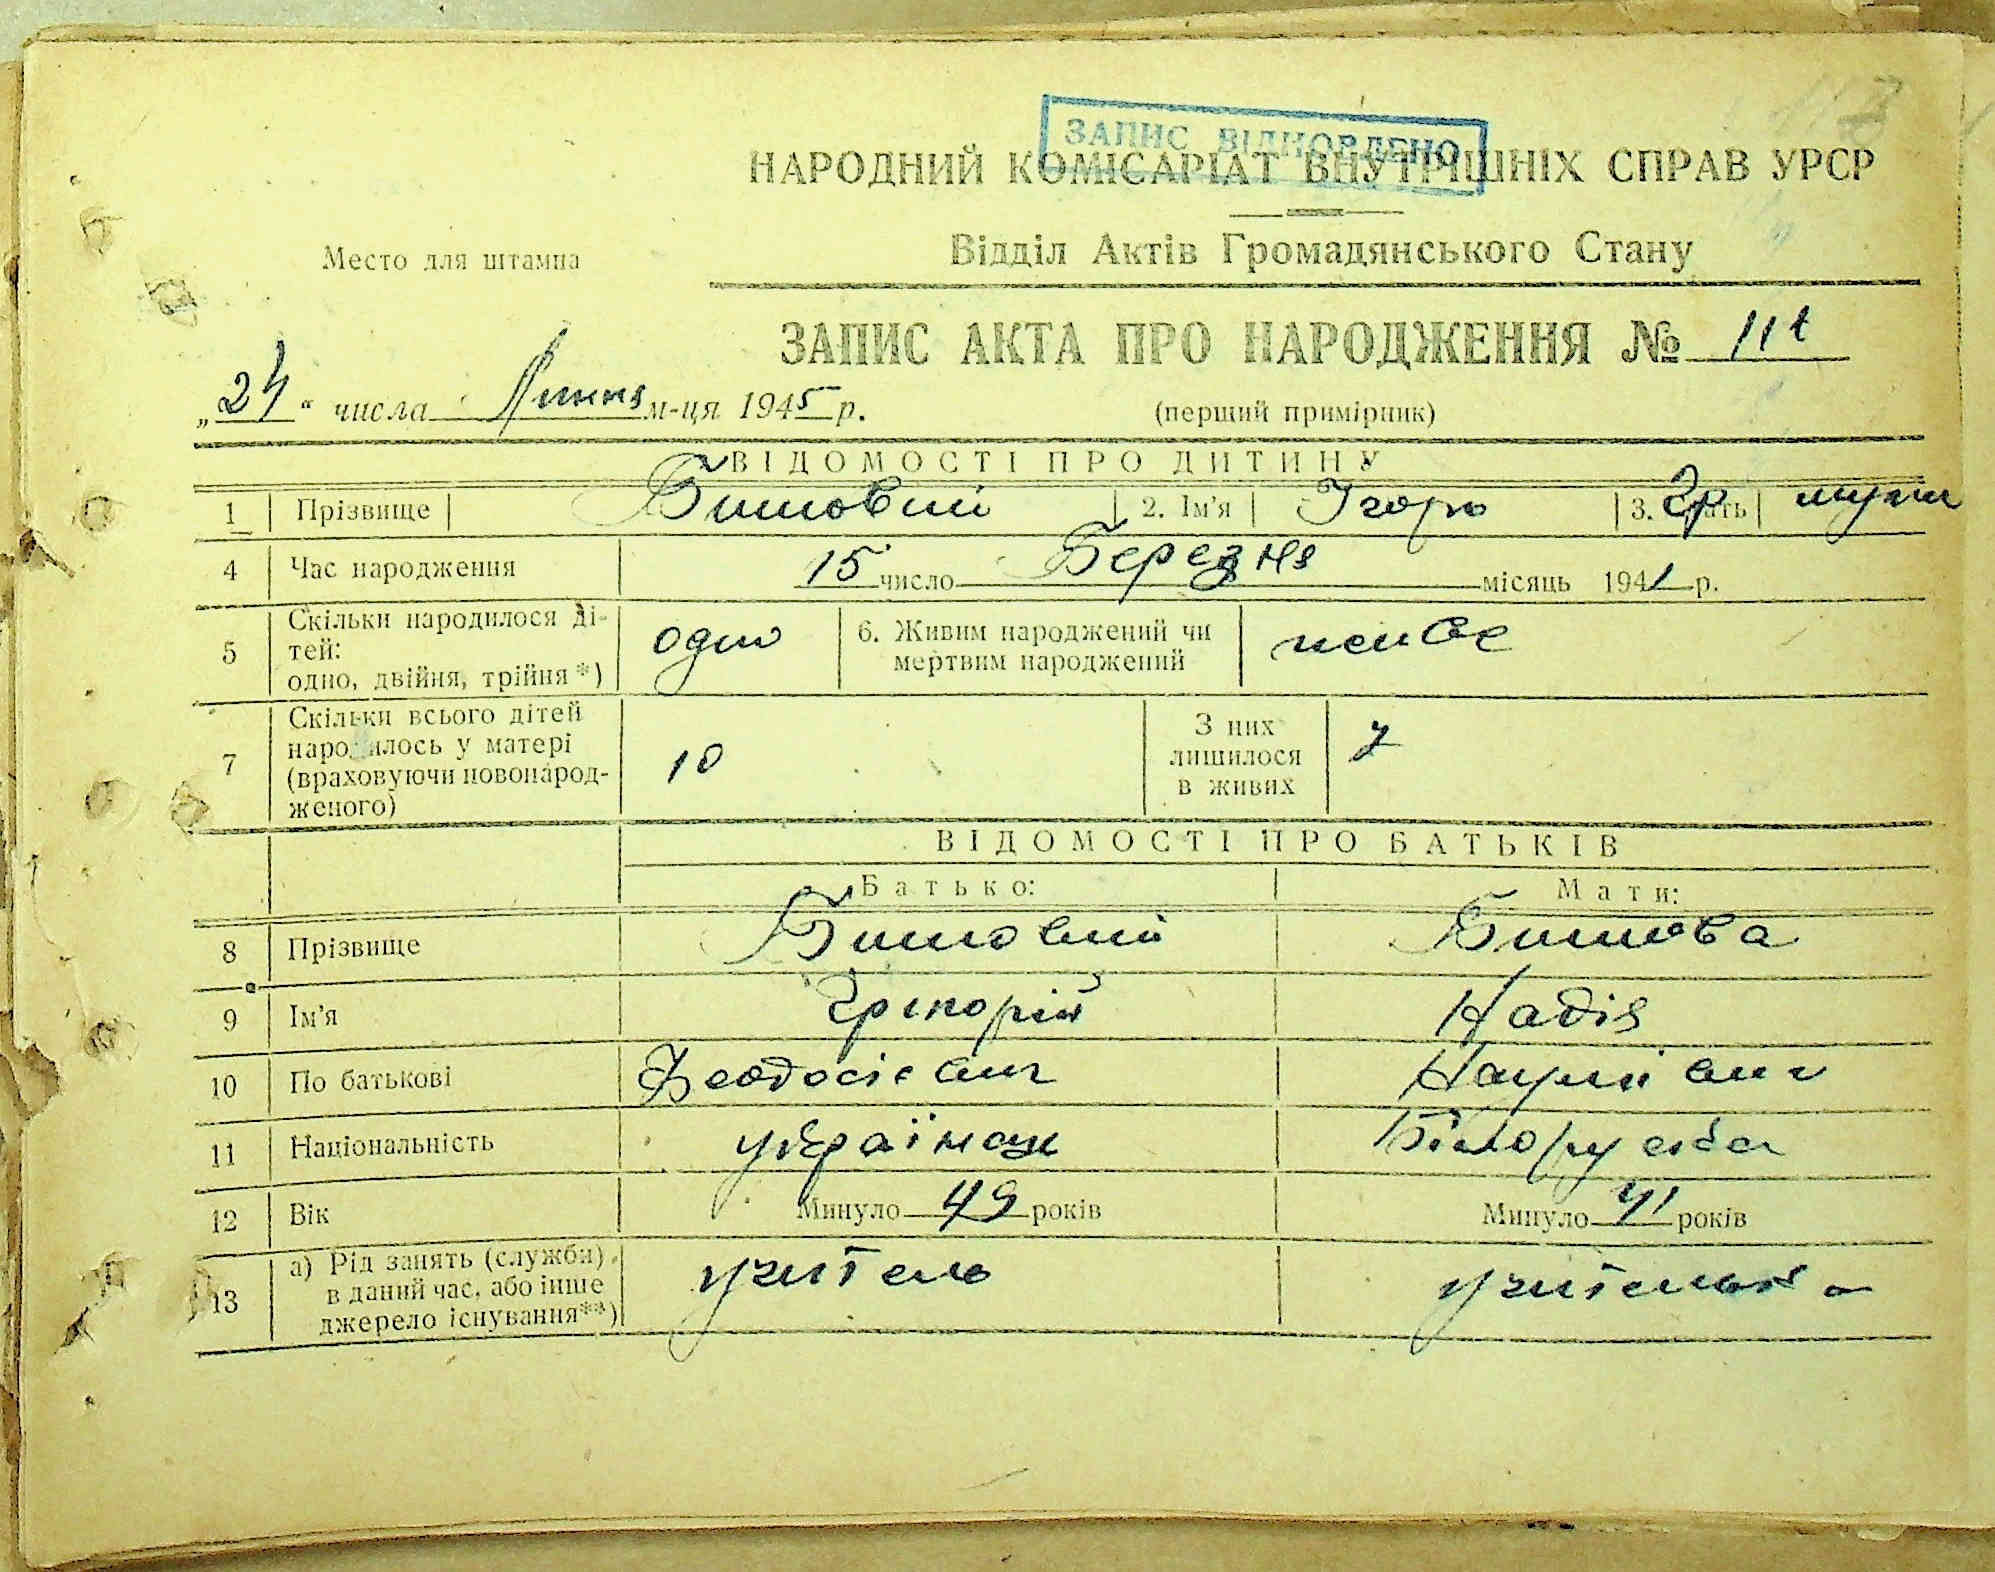 ЗАПИС ВІДНОВЛЕНО
НАРОДНИЙ КОМІСАРІАТ ВНУТРІШНІХ СПРАВ УРСР
Место для штампа
Відділ Актів Громадянського Стану
ЗАПИС АКТА ПРО НАРОДЖЕННЯ №
„24“ числа Липня м-ця 1945 р. (перший примірник)
ВІДОМОСТІ ПРО ДИТИНУ
1 Прізвище Бишовий 2. Ім'я Ігорь 3. Гр
4 Час народження 15 число Березня місяць 1941 р.
5 Скільки народилося ді-
тей:
одно, двійня, трійня*) одно 6. Живим народжений чи
мертвим народжений живе
7 Скільки всього дітей
народилось у матері
(враховуючи новонарод-
женого) 10 З них
лишилося
в живих 7
ВІДОМОСТІ ПРО БАТЬКІВ
Батько: Мати:
8 Прізвище Бишовий Бишова
9 Ім'я Григорій Надія
10 По батькові Феодосієвич Наумівна
11 Національність українец Білоруска
12 Вік Минуло 49 років Минуло 41 років
13 а) Рід занять (служби)
в даний час, або інше
джерело існування**) учитель учителька